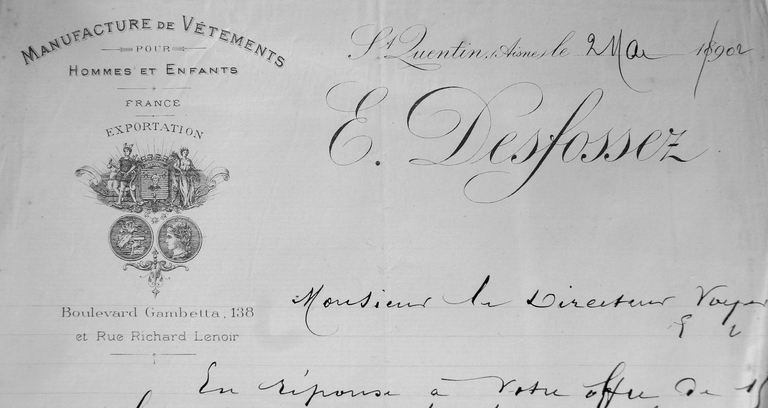 MANUFACTURE DE VÊTEMENTS
POUR
HOMMES ET ENFANTS
FRANCE
EXPORTATION
Boulevard Gambetta, 138
et Rue Richard Lenoir
St Quentin, (Aisne) le 2 Mai 1902
E. Desfossez
Monsieur le Directeur
En réponse à Votre offre de